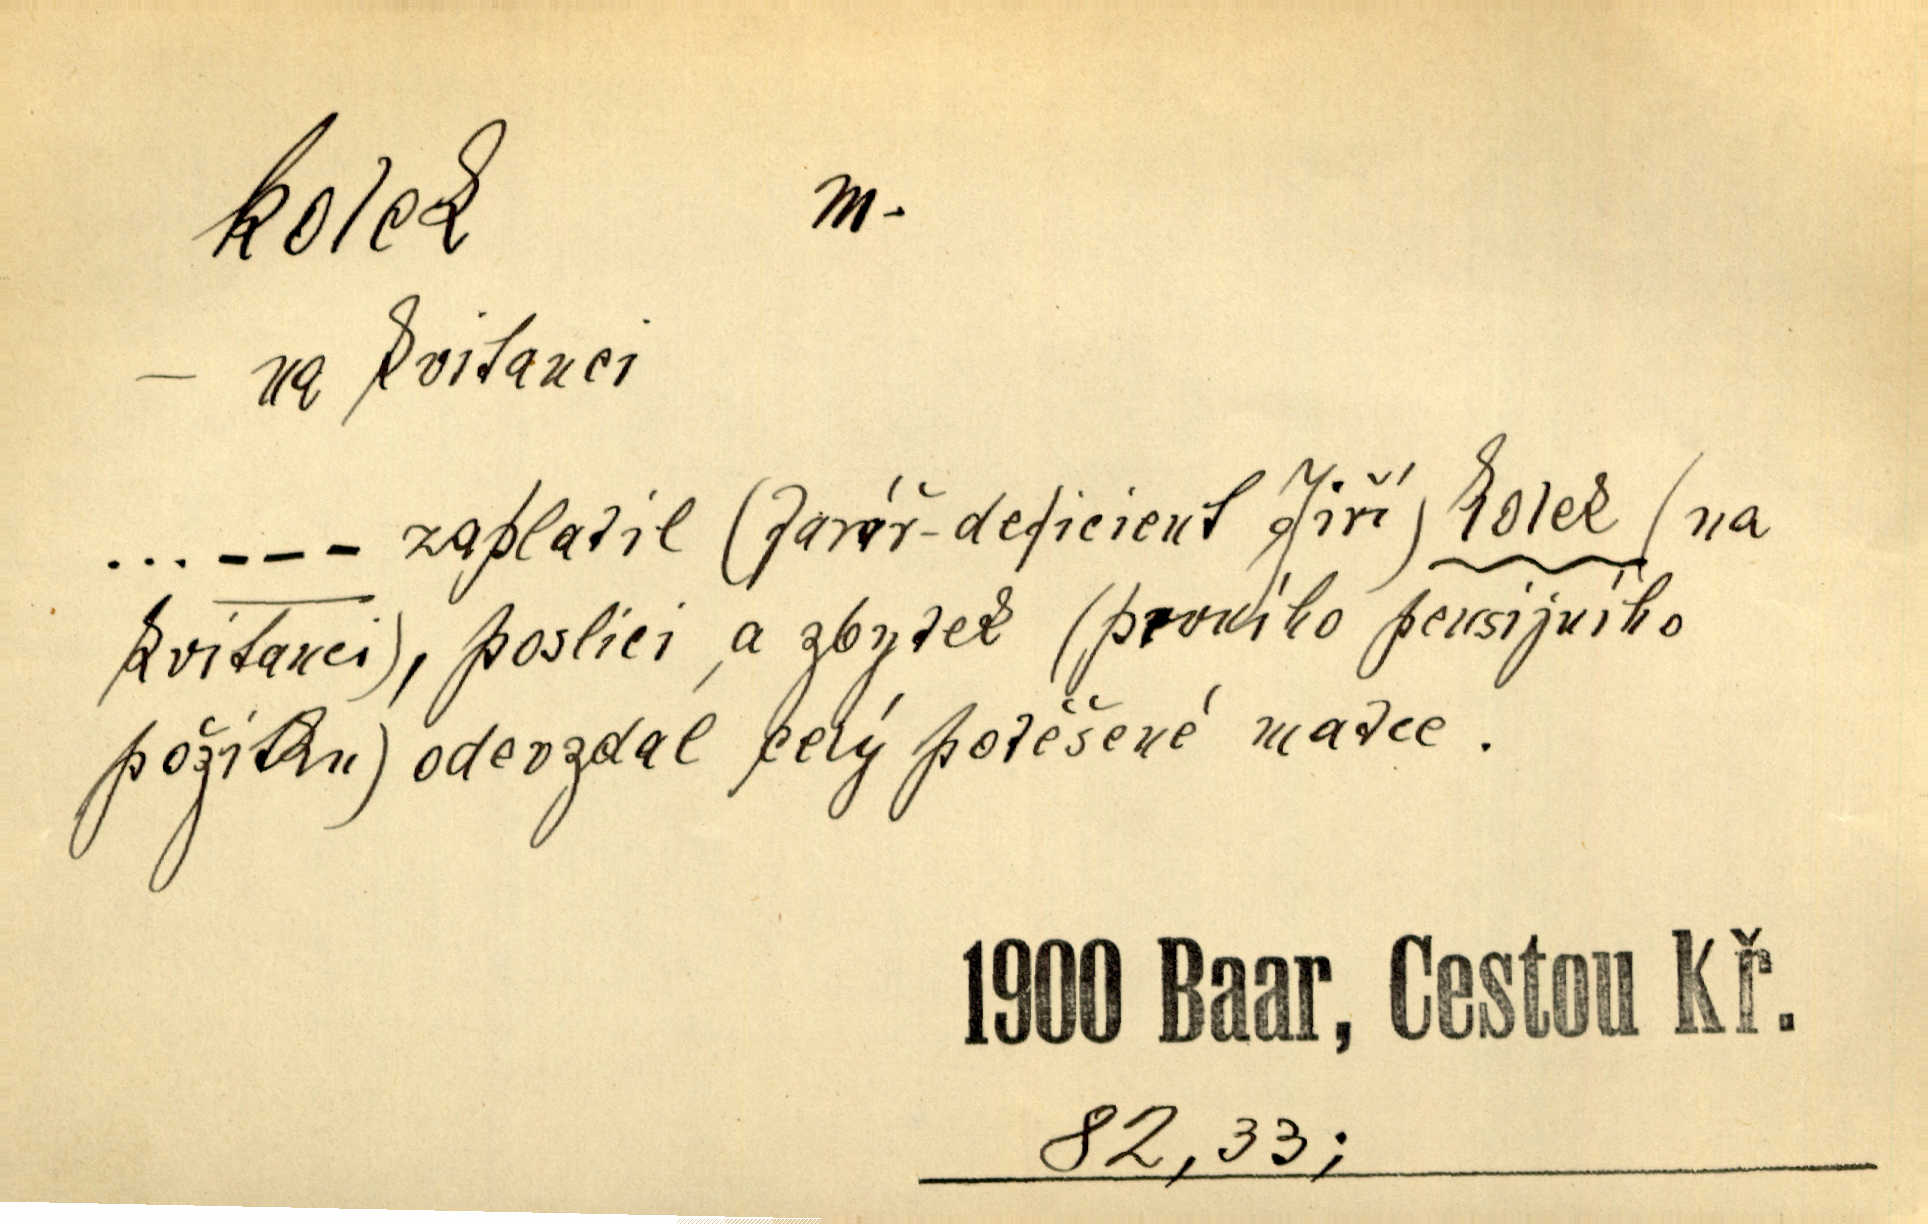 kolek m.
— na kvitanci
... --- zaplatil (farář-deficient Jiří) kolek (na
kvitanci), poslici a zbytek (prvního pensijního
požitku) odevzdal celý potěšené matce.
1900 Baar, Cestou Kř.
82,33;